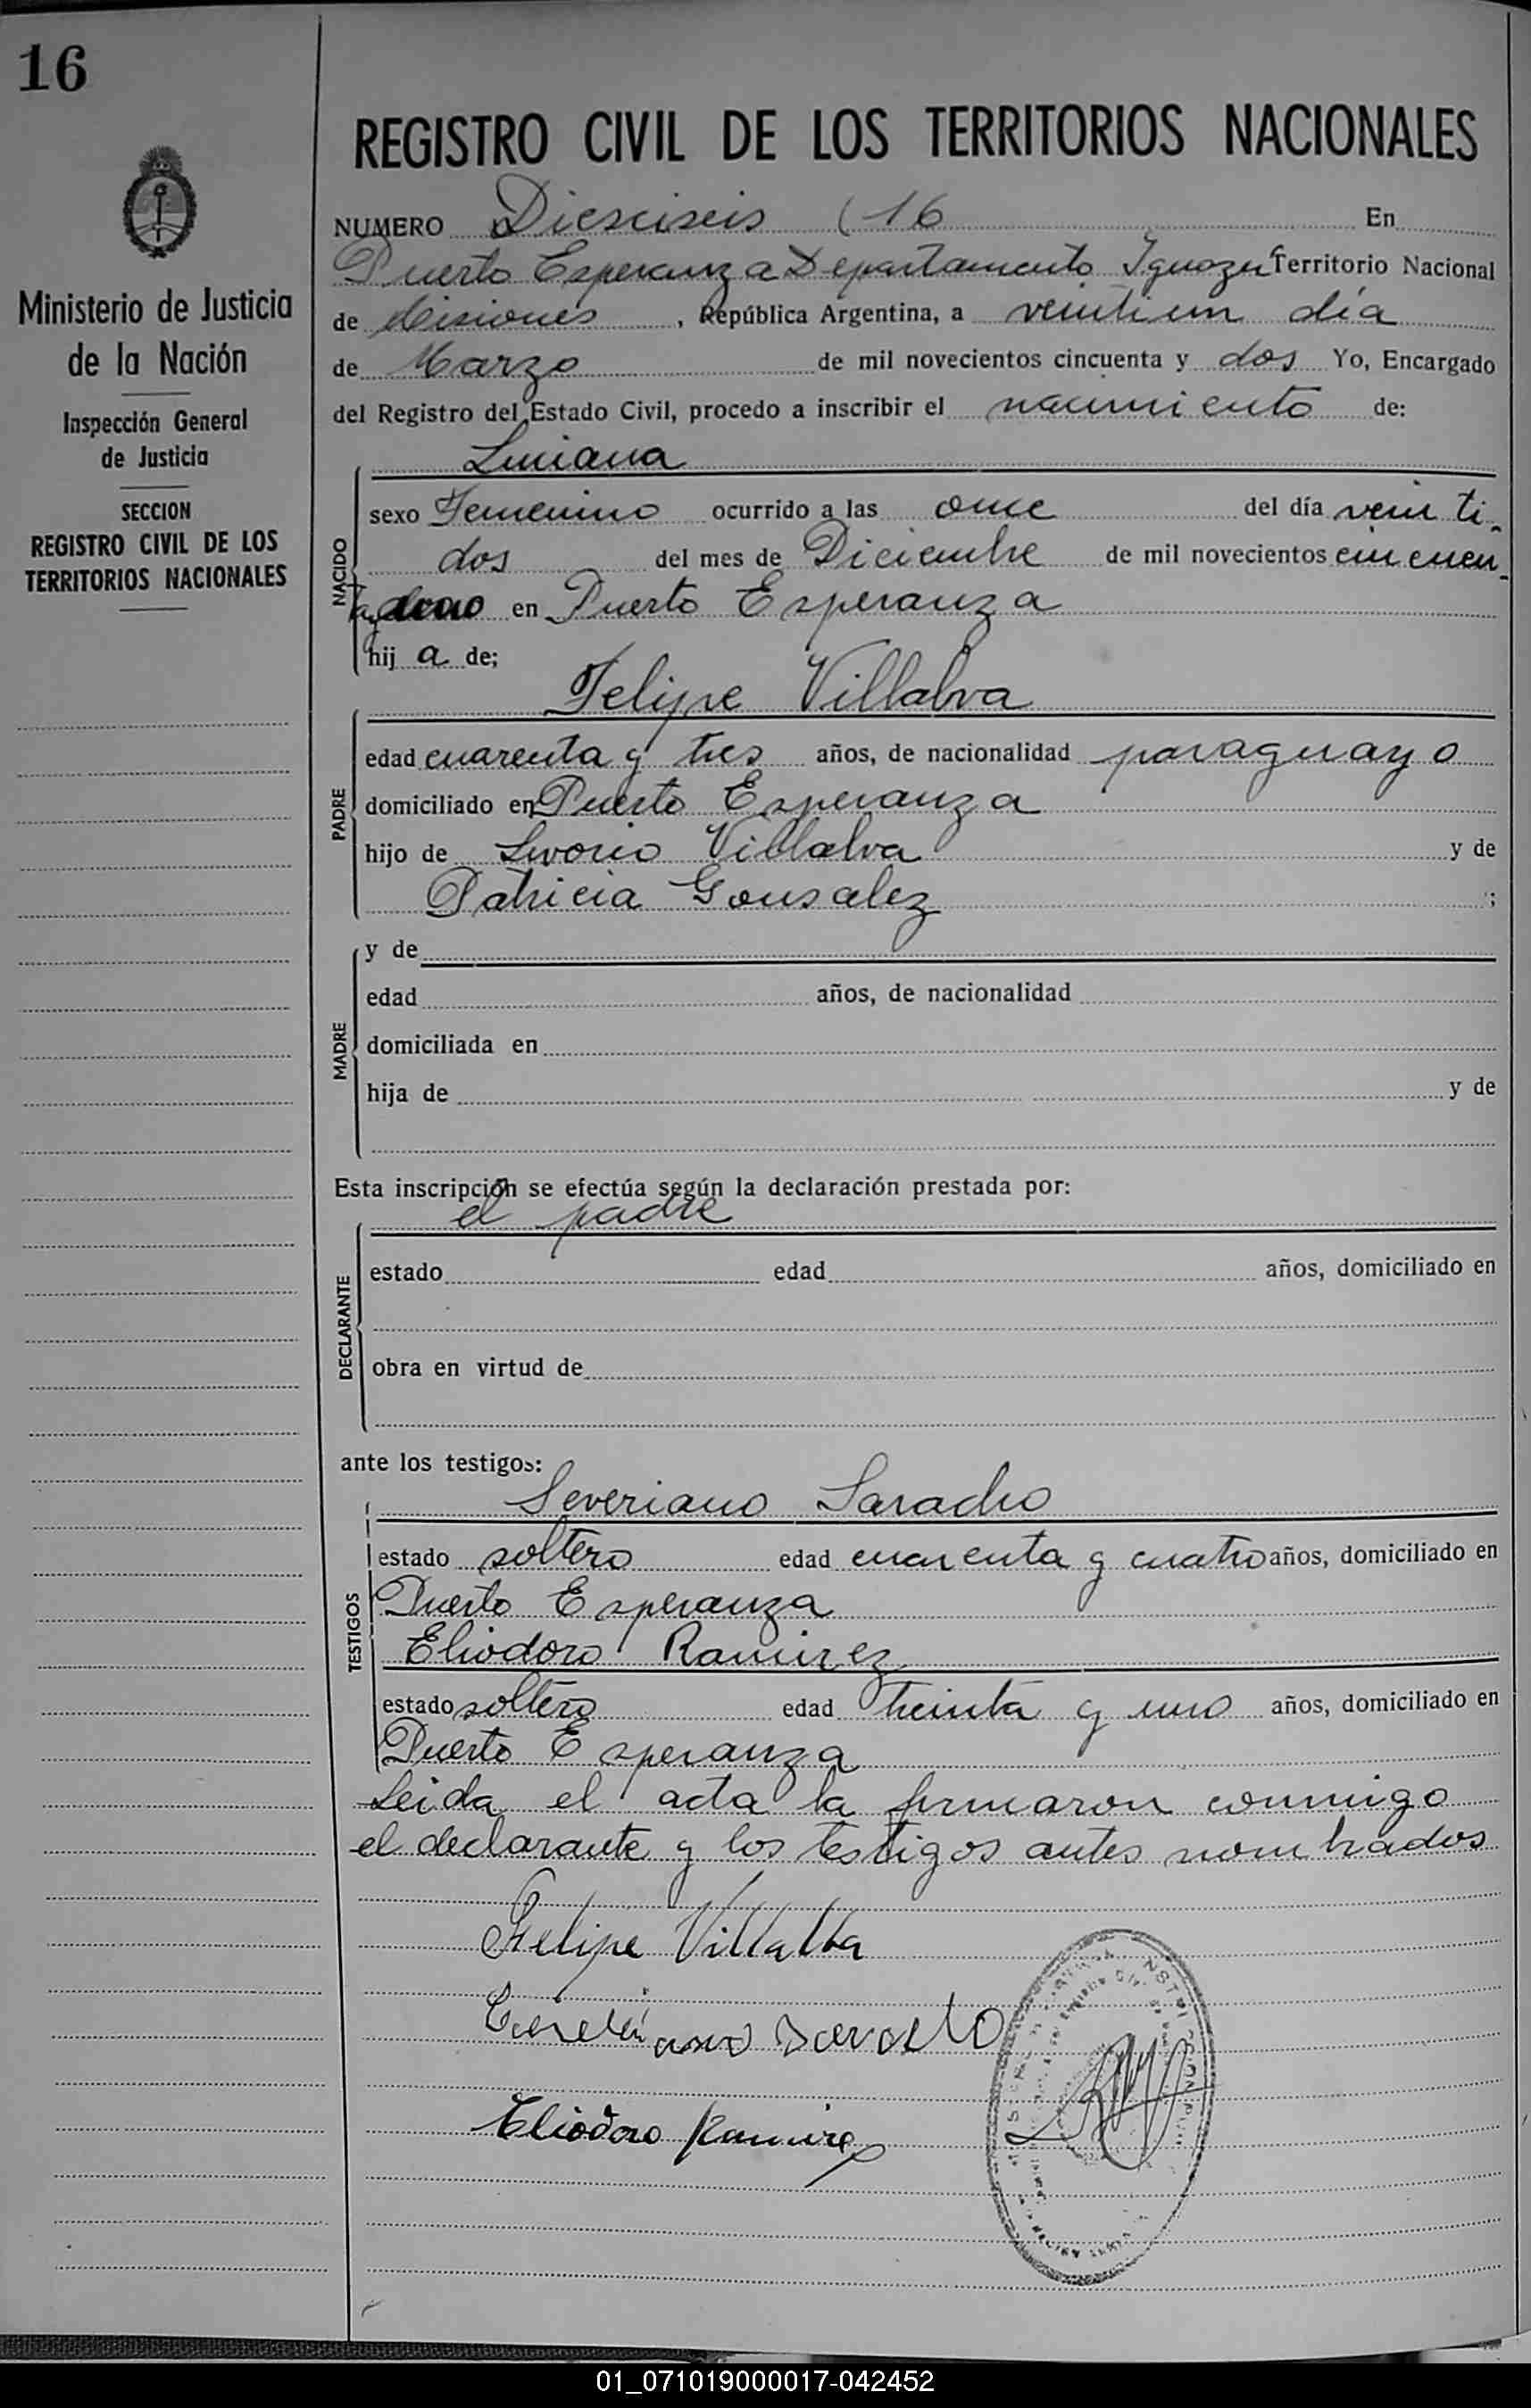 16
Ministerio de Justicia
de la Nación
Inspección General
de Justicia
SECCION
REGISTRO CIVIL DE LOS
TERRITORIOS NACIONALES
REGISTRO CIVIL DE LOS TERRITORIOS NACIONALES
NUMERO Diesciseis (16 En
Puerto Esperanza Departamento Iguazu Territorio Nacional
de Misiones, República Argentina, a veintiun día
de Marzo de mil novecientos cincuenta y dos Yo, Encargado
del Registro del Estado Civil, procedo a inscribir el nacimiento de:
NACIDO
Luciana
sexo Femenino ocurrido a las once del día veinti-
dos del mes de Diciembre de mil novecientos cincuen-
ta y en Puerto Esperanza
hij a de;
PADRE
Felipe Villalva
edad cuarenta y tres años, de nacionalidad paraguayo
domiciliado en Puerto Esperanza
hijo de Livorio Villalva y de
Patricia Gonsalez ;
MADRE
y de
edad años, de nacionalidad
domiciliada en
hija de y de
Esta inscripción se efectúa según la declaración prestada por:
DECLARANTE
el padre
estado edad años, domiciliado en
obra en virtud de
ante los testigos:
TESTIGOS
Severiano Saracho
estado soltero edad cuarenta y cuatro años, domiciliado en
Puerto Esperanza
Eliodoro Ramirez
estado soltero edad treinta y uno años, domiciliado en
Puerto Esperanza
Leida el acta la firmaron conmigo
el declarante y los testigos antes nombrados
Felipe Villalba
Eliodoro Ramirez
01_071019000017-042452